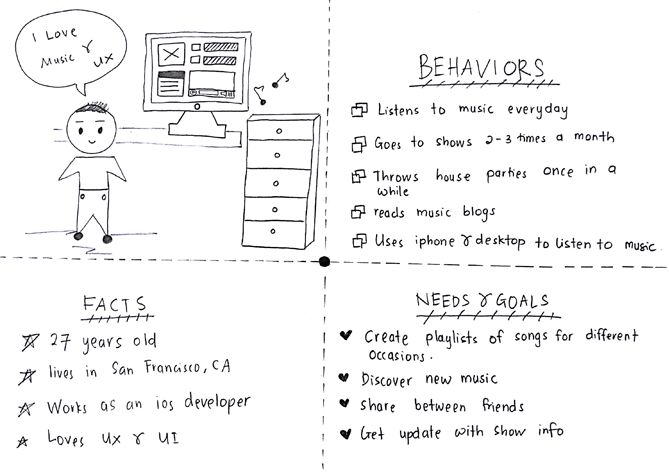 I Love
Music & UX
BEHAVIORS
Listens to music everyday
Goes to shows 2-3 times a month
Throws house parties once in a
while
reads music blogs
Uses iphone & desktop to listen to music.
FACTS
27 years old
lives in San Francisco, CA
Works as an ios developer
Loves UX & UI
NEEDS & GOALS
Create playlists of songs for different
occasions.
Discover new music
share between friends
Get update with show info